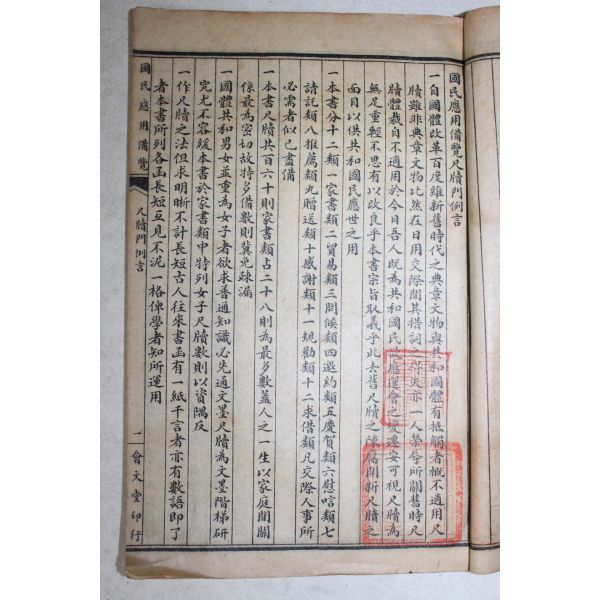 國民應用備覽尺牘門例言
一自國體改革百度維新舊時代之典章文物與共和國體有抵觸者概不適用尺
牘雖非典章文物比然在日用交際間其措詞之作夾亦一人榮辱所關舊時尺
牘體裁自不適用於今日吾人既為共和國民應運會之變遷安可視尺牘為
無足重輕不思有以改良乎本書宗旨取義乎此去舊尺牘之陳腐開新尺牘之
面目以供共和國民應世之用
一本書分十二類一家書類二貿易類三問候類四邀約類五慶賀類六慰唁類七
請託類八推薦類九贈送類十感謝類十一規勸類十二求借類凡交際人事所
必需者似已盡備
一本書尺牘共百六十則家書類占二十八則為最多數蓋人之一生以家庭間關
係最為密切故特多備數則冀免疎漏
一國體共和男女並重為女子者欲求普通知識必先通文墨尺牘為文墨階梯研
究尤不容緩本書於家書類中特列女子尺牘數則以資隅反
一作尺牘之法但求明晰不計長短古人往來書函有一紙千言者亦有數語即了
者本書所列各函長短互見不泥一格俾學者知所運用
國民應用備覽
尺牘門例言
二
會文堂印行